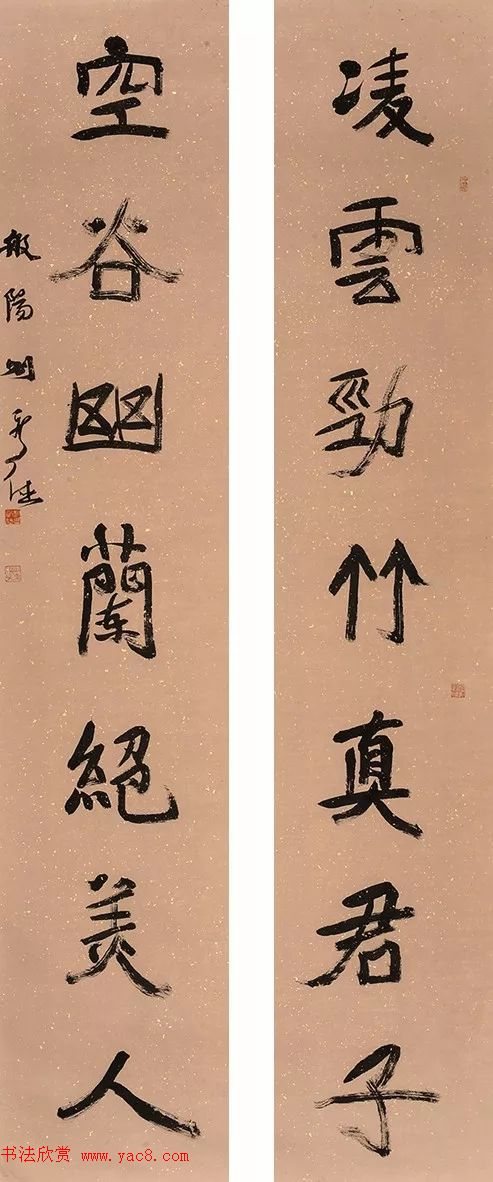 凌雲勁竹真君子
空谷幽蘭絕美人
般陽
书法欣赏 www.yac8.com